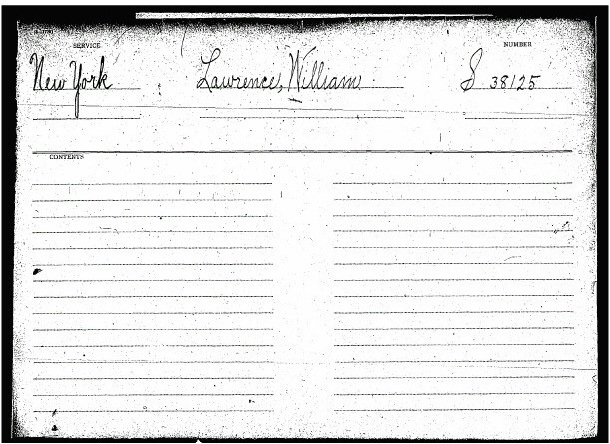 SERVICE NUMBER
New York Lawrence, William S 38125
CONTENTS